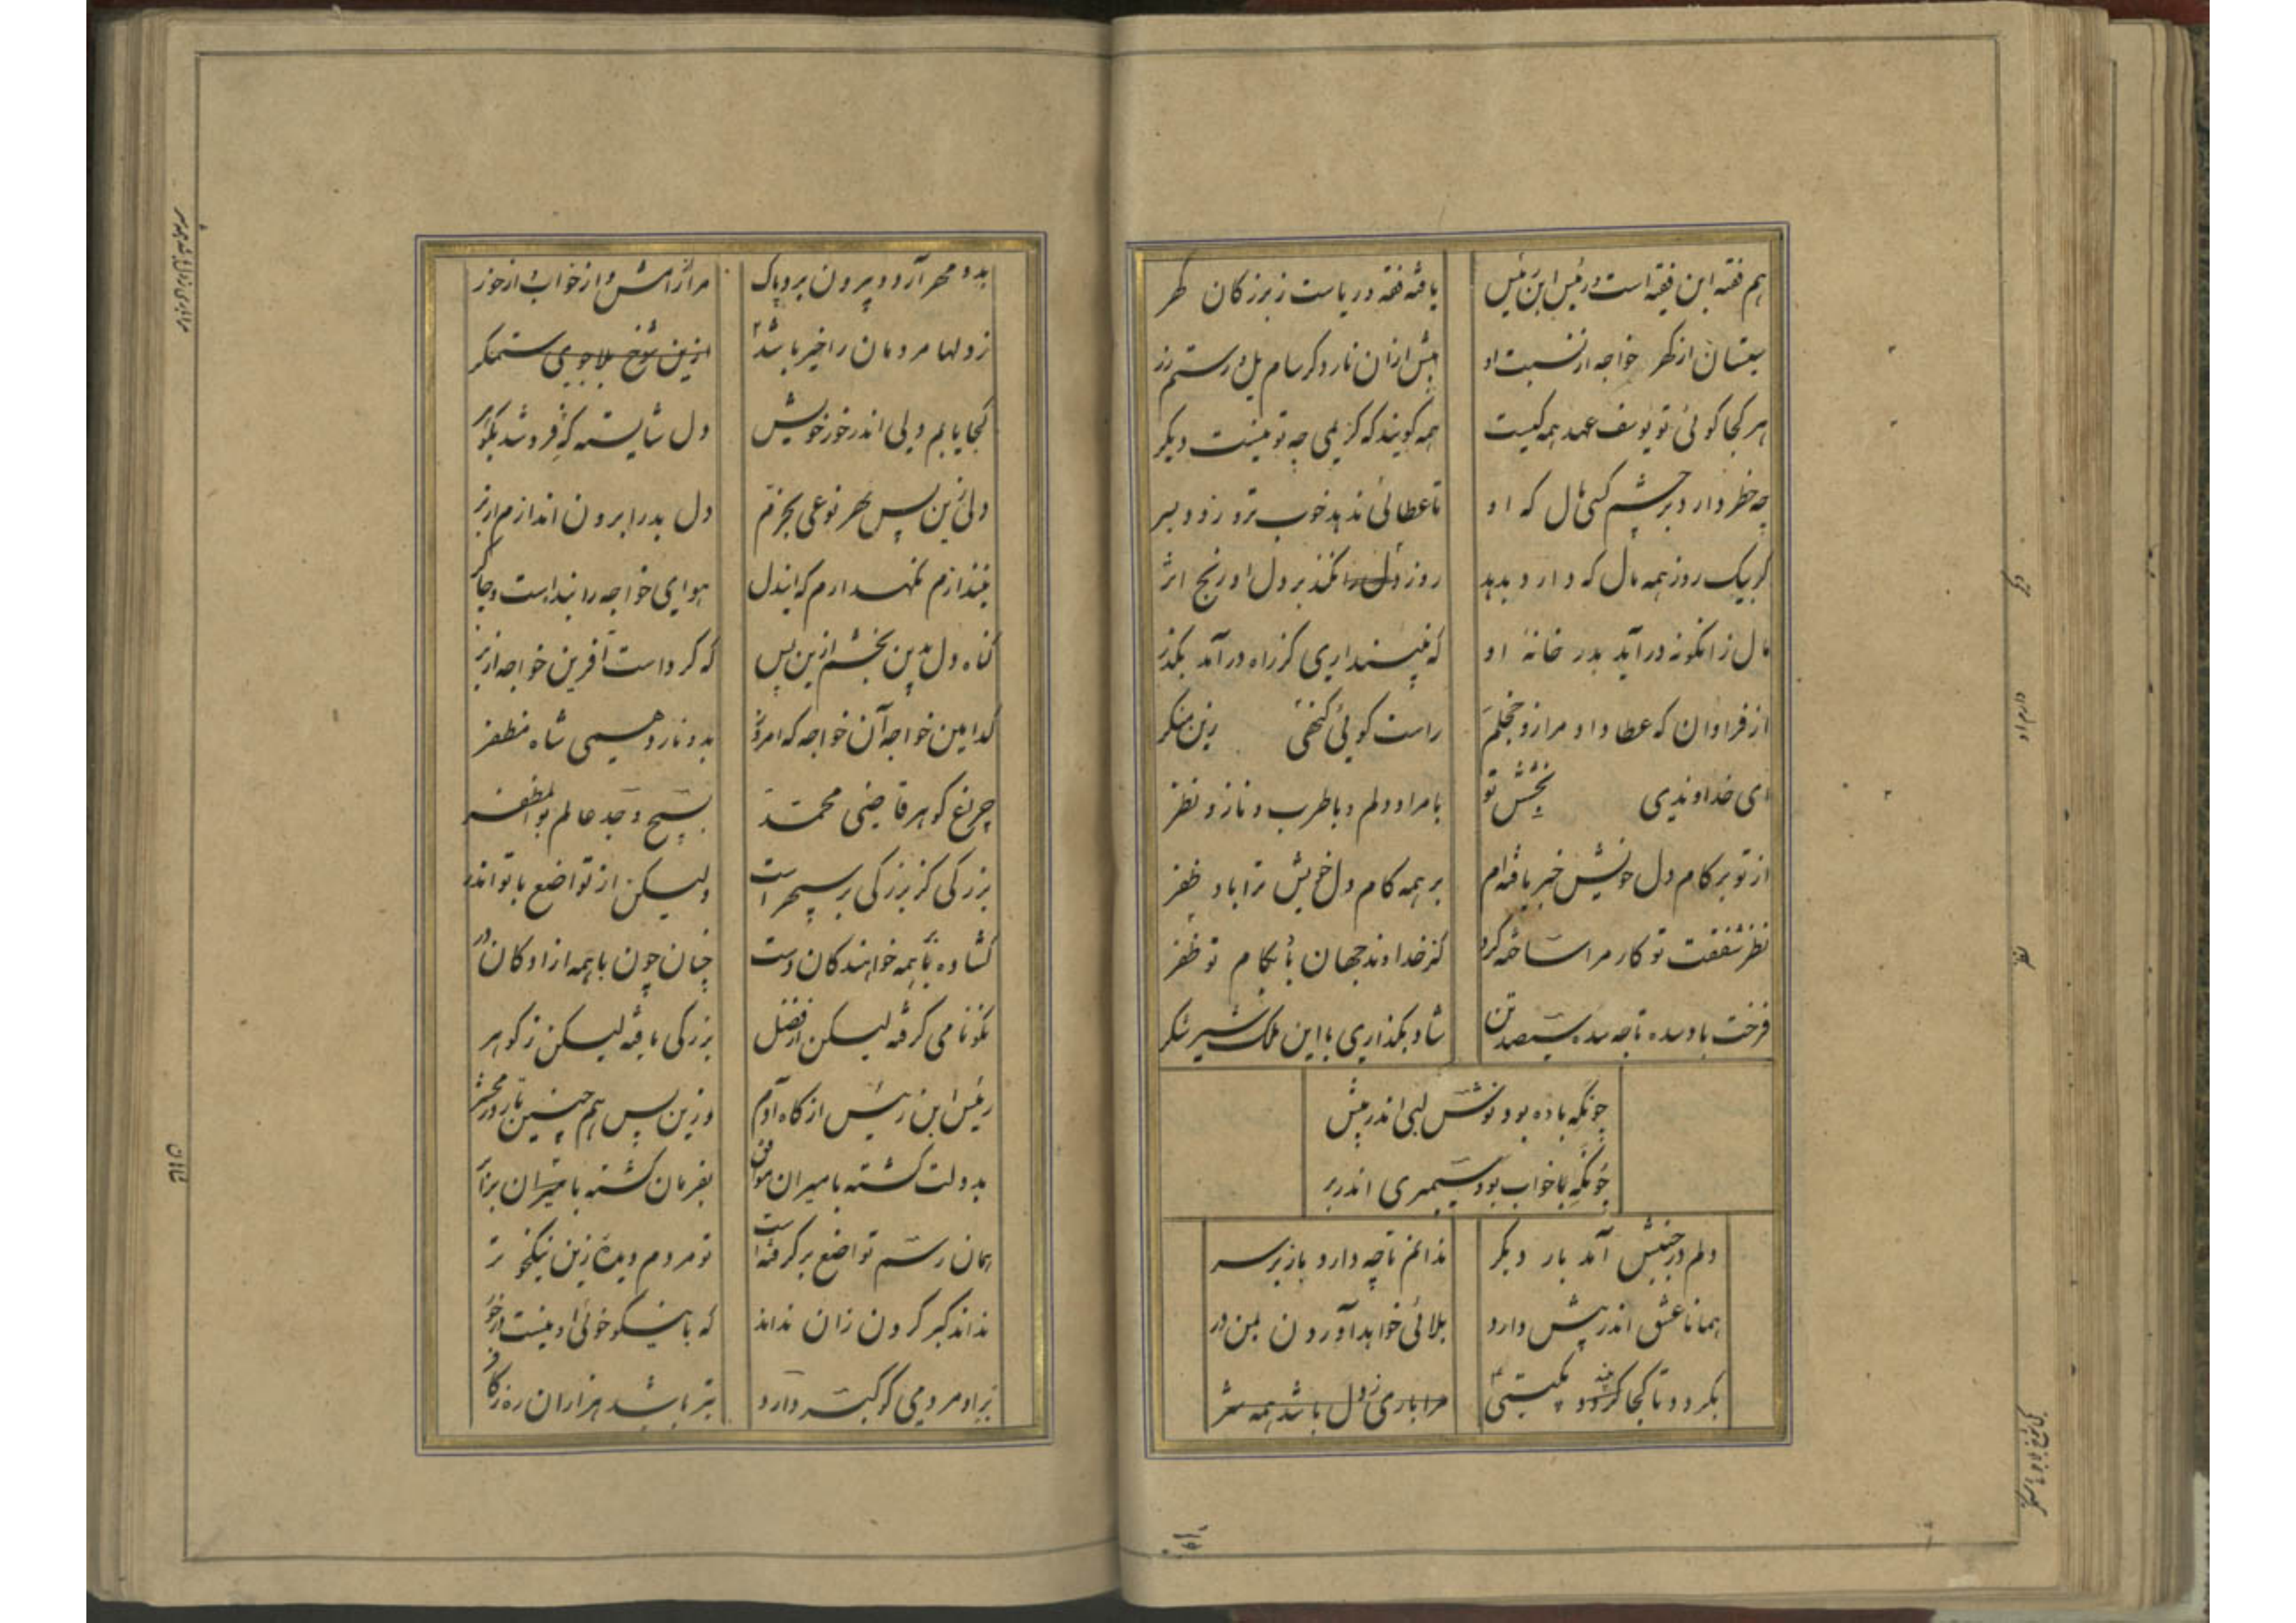 هم فقیه ابن فقیه است و رئیس ابن رئیس
یافته فقه و ریاست ز بزرگان گهر
سیستان از گهر خواجه از نسبت او
پیش ازان نازد کز سام یل و رستم زر
هر کجا گوئی تو یوسف عهد همه کیست
همه گویند که کریمی چه تو نیست دیگر
چه خطر دارد بر چشم کسی مال که او
تا عطائی ندهد خوب نرود زود ببر
گر بیک روز همه مال که دارد بدهد
روز دل را نکند بر دل او رنج اثر
مال زانگونه در آید بدر خانه او
که نپنداری کز راه در آمد بگذر
از فراوان که عطا داد مرا زو خجلم
راست گوئی گنهی زین منکر
ای خداوندی بخشش تو
با مراد دلم و با طرب و ناز و نظر
از تو بر کام دل خویش خبر یافته‌ام
بر همه کام دل خویش ترا باد ظفر
نظر شفقت تو کار مرا ساخته کرد
کز خداوند جهان با بکام تو ظفر
فرخت باد سده تا چه سده سیصد تن
شاد بگذاری با این ملک شیر شکر
چونکه باده بود نوشین لبی اندر پیش
چونکه با خواب بود سیمبری اندر بر
دلم در جنبش آمد بار دیگر
ندانم تا چه دارد باز بر سر
همانا عشق اندر پیش دارد
بلائی خواهد آوردن بمن در
بگردد تا کجا گردد بگیتی
مرا باری ز دل باشد همه شر
بدو مهر آرد و بیرون برد پاک
مرا از رامش و از خواب و از خور
ز دلها مردمان را خیر باشد
ازین شوخ بلاجوی ستمگر
کجا یابم دلی اندر خور خویش
دل شایسته که فروشد نکوتر
دلی زین پس بهر نوعی بخرم
دل بد را برون اندازم از بر
نیندازم نگهدارم که ایندل
هوای خواجه را بنداست و چاکر
گناه دل بدین بخشم ازین پس
که کرداست آفرین خواجه از بر
کدامین خواجه آن خواجه که امروز
بدو نازد همیی شاه مظفر
چراغ گوهر قاضی محمد
بسیح وجد عالم بوالمظفر
بزرگی کز بزرگی بر سپهر است
ولیکن از تواضع با تو اندر
گشاده با همه خواهندگان دست
چنان چون با همه ازادگان در
نکونامی گرفته لیکن از فضل
بزرگی یافته لیکن ز گوهر
رئیس ابن رئیس از گاه آدم
وزین پس هم چنین تا روز محشر
بدولت گشته با میران موافق
بفرمان گشته با میران برابر
همان رسم تواضع برگرفته است
تو مردم دیده زین نیکخو تر
نداند کبر کردن زان نداند
که با نیکو خوئی او نیست در خور
بر او مردمی کو کبر دارد
بتر باشد هزاران ره ز کافر